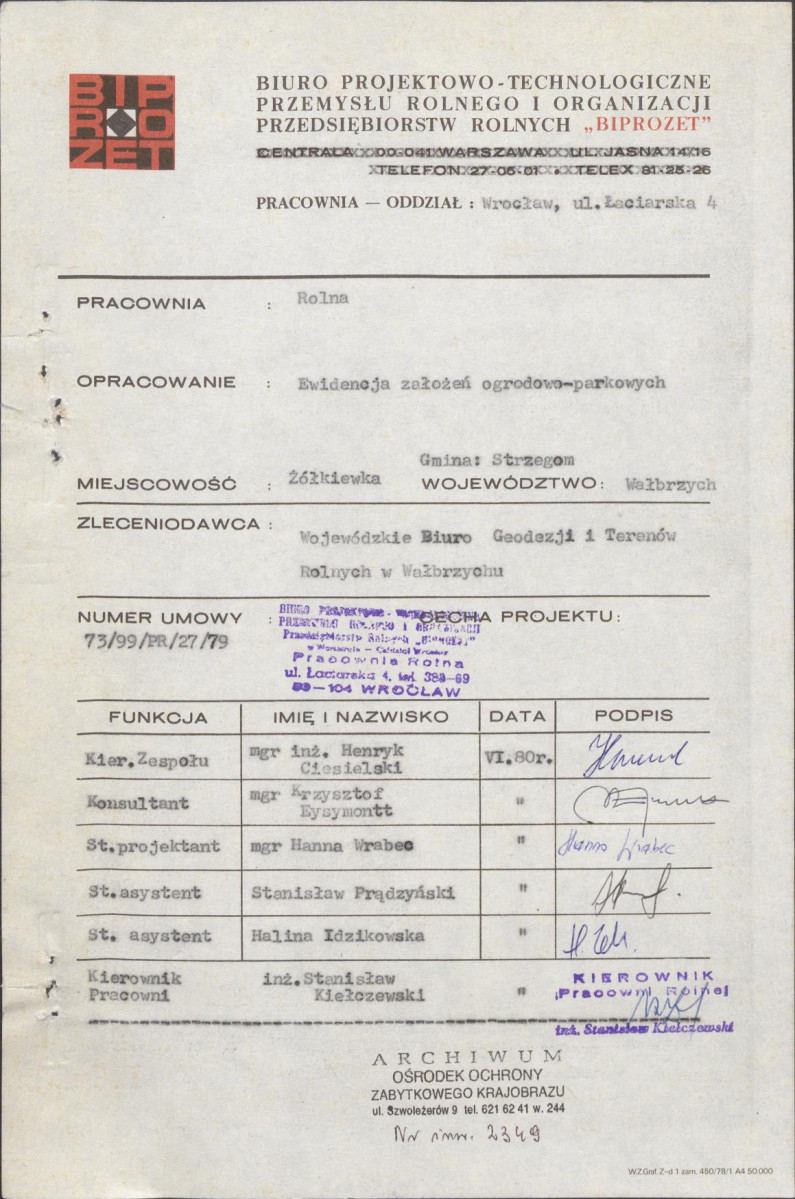 BIP
RO
ZET
BIURO PROJEKTOWO-TECHNOLOGICZNE
PRZEMYSŁU ROLNEGO I ORGANIZACJI
PRZEDSIĘBIORSTW ROLNYCH „BIPROZET”
CENTRALA 00-041 WARSZAWA UL. JASNA 14/16
TELEFON 27-06-01 • TELEX 81-25-26
PRACOWNIA — ODDZIAŁ : Wrocław, ul.Łaciarska 4
PRACOWNIA : Rolna
OPRACOWANIE : Ewidencja założeń ogrodowo-parkowych
Gmina: Strzegom
MIEJSCOWOŚĆ : Żółkiewka WOJEWÓDZTWO: Wałbrzych
ZLECENIODAWCA : Wojewódzkie Biuro Geodezji i Terenów
Rolnych w Wałbrzychu
NUMER UMOWY : CECHA PROJEKTU:
73/99/PR/27/79
BIURO PROJEKTOWO-
PRZEMYSŁU ROLNEGO I ORGANIZACJI
Przedsiębiorstw Rolnych „BIPROZET”
w Warszawie — Oddział Wrocław
Pracownia Rolna
ul. Łaciarska 4, tel. 383-69
50-104 WROCŁAW
FUNKCJA IMIĘ I NAZWISKO DATA PODPIS
Kier.Zespołu mgr inż. Henryk Ciesielski VI.80r.
Konsultant mgr Krzysztof Eysymontt "
St.projektant mgr Hanna Wrabec " Hanna Wrabec
St.asystent Stanisław Prądzyński "
St. asystent Halina Idzikowska "
Kierownik Pracowni inż.Stanisław Kiełczewski "
KIEROWNIK
Pracowni Rolnej
inż. Stanisław Kiełczewski
ARCHIWUM
OŚRODEK OCHRONY
ZABYTKOWEGO KRAJOBRAZU
ul. Szwoleżerów 9 tel. 621 62 41 w. 244
Nr inw. 2349
W.Z.Graf. Z-d 1 zam. 450/78/1 A4 50.000